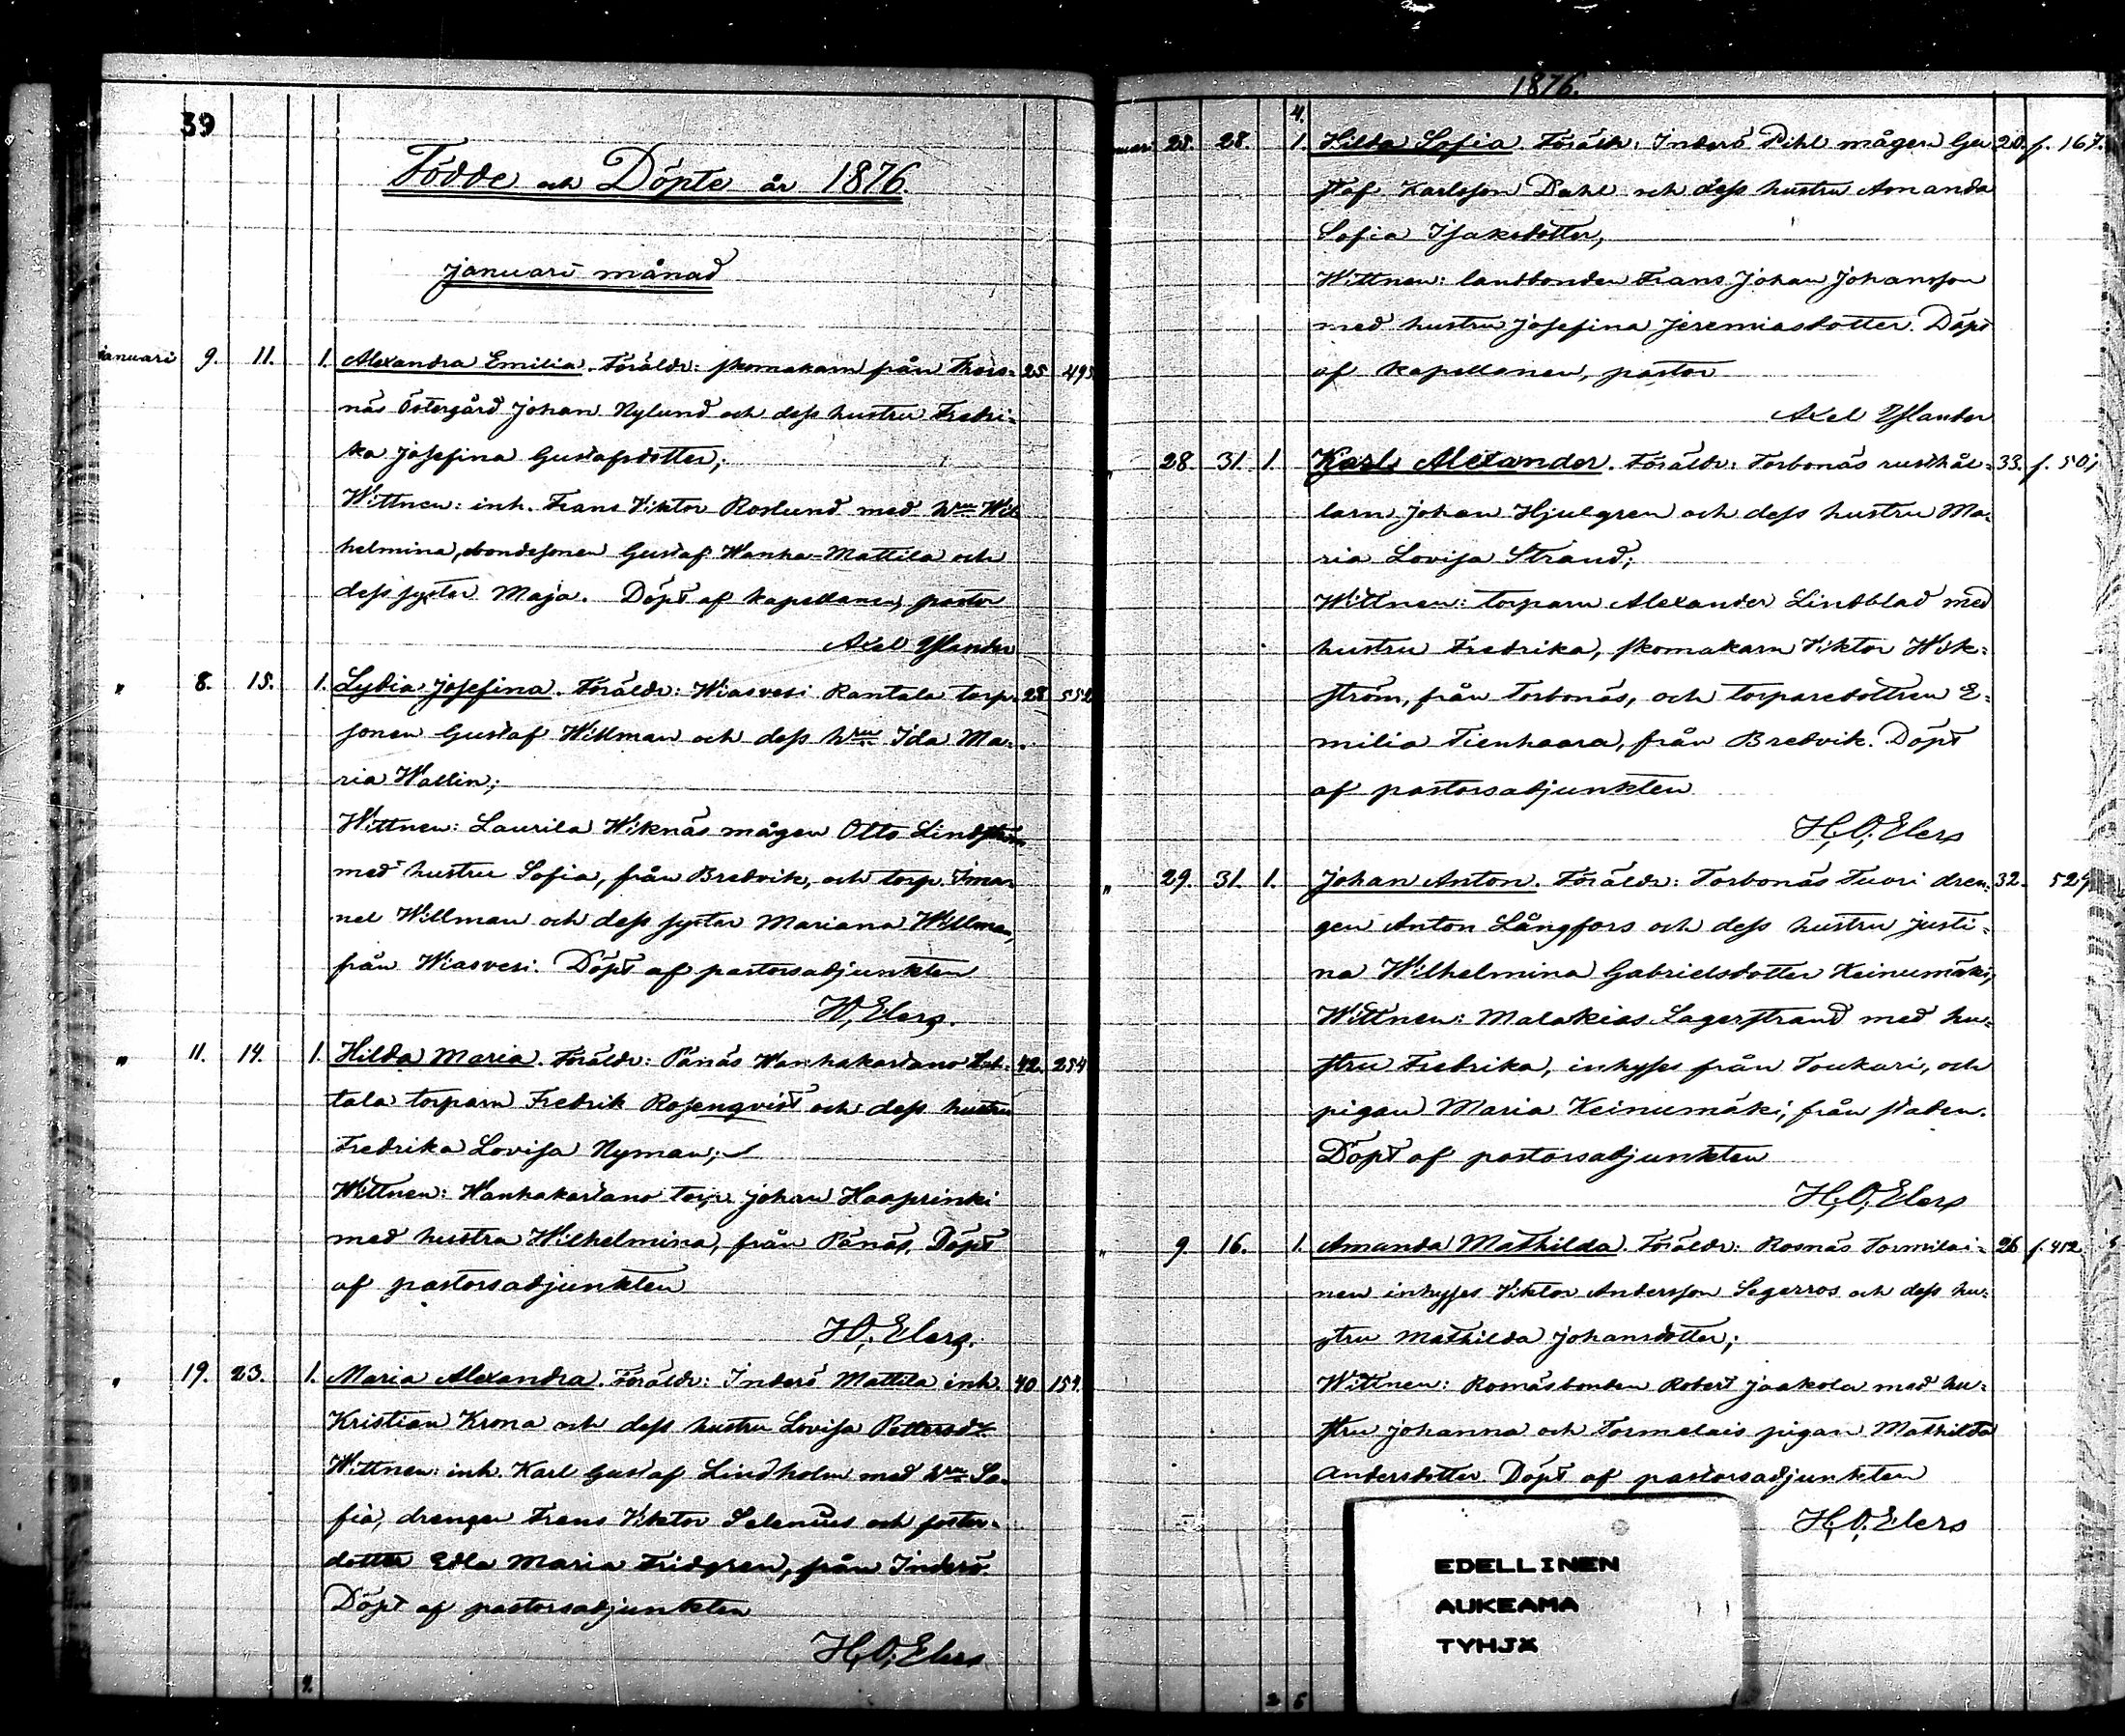 39
Födde och Döpte år 1876.
januari månad
januari 9. 11. 1. Alexandra Emilia. Föräldr: skomakarn från Thors- 25 495
näs Östergård Johan Nylund och dess hustru Fredri-
ka Josefina Gustafsdotter;
Wittnen: inh. Frans Viktor Roslund med hru Wil
helmina, bondesonen Gustaf Wanha-Mattila och
dess syster Maja. Döpt af kapellanen, pastor
Axel Yllander
" 8. 15. 1. Lydia Josefina. Föräldr: Wiasvesi Rantala torp- 28 552
sonen Gustaf Willman och dess hru Ida Ma-
ria Wallin;
Wittnen: Laurila Wiknäs mågen Otto Lindström
med hustru Sofia, från Bredvik, och torp. Ima-
nel Willman och dess syster Mariana Willman,
från Wiasvesi. Döpt af pastorsadjunkten
H,O,Elers.
" 11. 14. 1. Hilda Maria. Föräldr: Pänäs Wanhakartano 42. 254
tala torparn Fredrik Rosenqvist och dess hustru
Fredrika Lovisa Nyman;
Wittnen: Wanhakartano torp. Johan Haaprinki
med hustru Wilhelmina, från Pänäs. Döpt
af pastorsadjunkten
H,O,Elers.
" 19. 23. 1. Maria Alexandra. Föräldr: Inderö Mattila inh. 40 154.
Kristian Krona och dess hustru Lovisa Pettersdr
Wittnen: inh. Karl Gustaf Lindholm med hru So-
fia, drengen Frans Viktor Selenius och foster-
dotter Edla Maria Fridgren, från Inderö.
Döpt af pastorsadjunkten
H,O,Elers
4.
1876.
4.
28. 28. 1. Hilda Sofia. Föräldr: Inderö Pihl mågen Gu 20. f. 167.
staf Karlsson Dahl och dess hustru Amanda
Sofia Isaksdotter,
Wittnen: landbonden Frans Johan Johansson
med hustru Josefina Jeremiasdotter. Döpt
af kapellanen, pastor
Axel Yllander
" 28. 31. 1. Karl Alexander. Föräldr: Torbonäs rusthål- 33. f. 501
larn Johan Hjulgren och dess hustru Ma-
ria Lovisa Strand;
Wittnen: torparn Alexander Lindblad med
hustru Fredrika, skomakarn Viktor Wik-
ström, från Torbonäs, och torparedottren E-
milia Tienhaara, från Bredvik. Döpt
af pastorsadjunkten
H,O,Elers
" 29. 31. 1. Johan Anton. Föräldr: Torbonäs Tuori dren- 32. 529
gen Anton Långfors och dess hustru Justi-
na Wilhelmina Gabrielsdotter Keinumäki,
Wittnen: Malakias Lagerstrand med hu-
stru Fredrika, inhyses från Toukari, och
pigan Maria Keinumäki, från staden.
Döpt af pastorsadjunkten
H,O,Elers
" 9. 16. 1. Amanda Mathilda. Föräldr: Rosnäs Tormilai- 26 f. 412.
nen inhyses Viktor Andersson Segerros och dess hu-
stru Mathilda Johansdotter;
Wittnen: Rosnäsbonden Robert Jaakola med hu-
stru Johanna och Tormelais pigan Mathilda
Andersdotter. Döpt af pastorsadjunkten
H,O,Elers
EDELLINEN
AUKEAMA
TYHJÄ